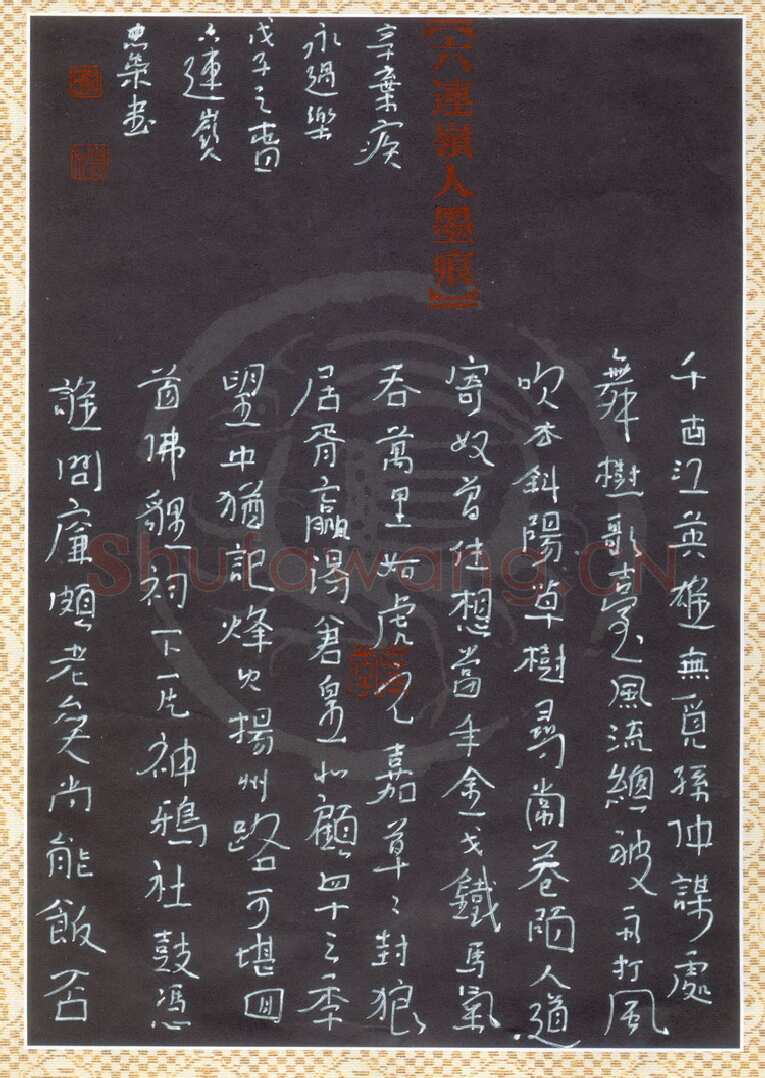 【六連嶺人墨痕】
千古江英雄無覓孫仲謀處
舞榭歌臺風流總被雨打風
吹去斜陽草樹尋常巷陌人道
寄奴曾住想當年金戈鐵馬氣
吞萬里如虎元嘉草〻封狼
居胥贏得倉皇北顧四十三年
望中猶記烽火揚州路可堪回
首佛貍祠下一片神鴉社鼓憑
誰問廉頗老矣尚能飯否
辛棄疾
永遇樂
戊子之春
六連嶺
忠榮書
Shufawang.CN